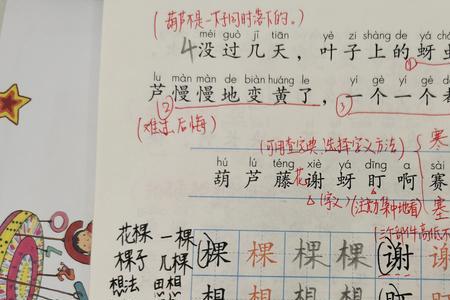 (葫芦不是一下子同时落下的。)
méi guò jǐ tiān yè zi shàng de yá
4没过几天,叶子上的蚜虫
lu màn màn de biàn huáng le yí gè yí gè dē
②芦慢慢地变黄了,③一个一个都
(难过、后悔)
(可用查字典、选择字义方法)
hú lú téng xiè yá dīng a sài
葫芦藤花谢蚜盯啊赛
寒
塞
△(字义)(注意力集中地看)
花棵 一棵 棵棵棵棵谢
棵子 几棵
想法 田想 想想想想盯